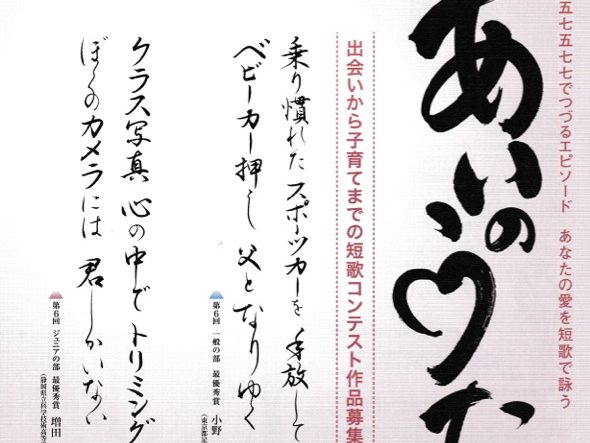 五七五七七でつづるエピソード　あなたの愛を短歌で詠う
あいのうた
出会いから子育てまでの短歌コンテスト作品募集
乗り慣れたスポーツカーを 手放して
ベビーカー押し 父となりゆく
第6回 一般の部 最優秀賞 小野
クラス写真 心の中で トリミング
ぼくのカメラには 君しかいない
第6回 ジュニアの部 最優秀賞 増田
(静岡県立科学技術高等